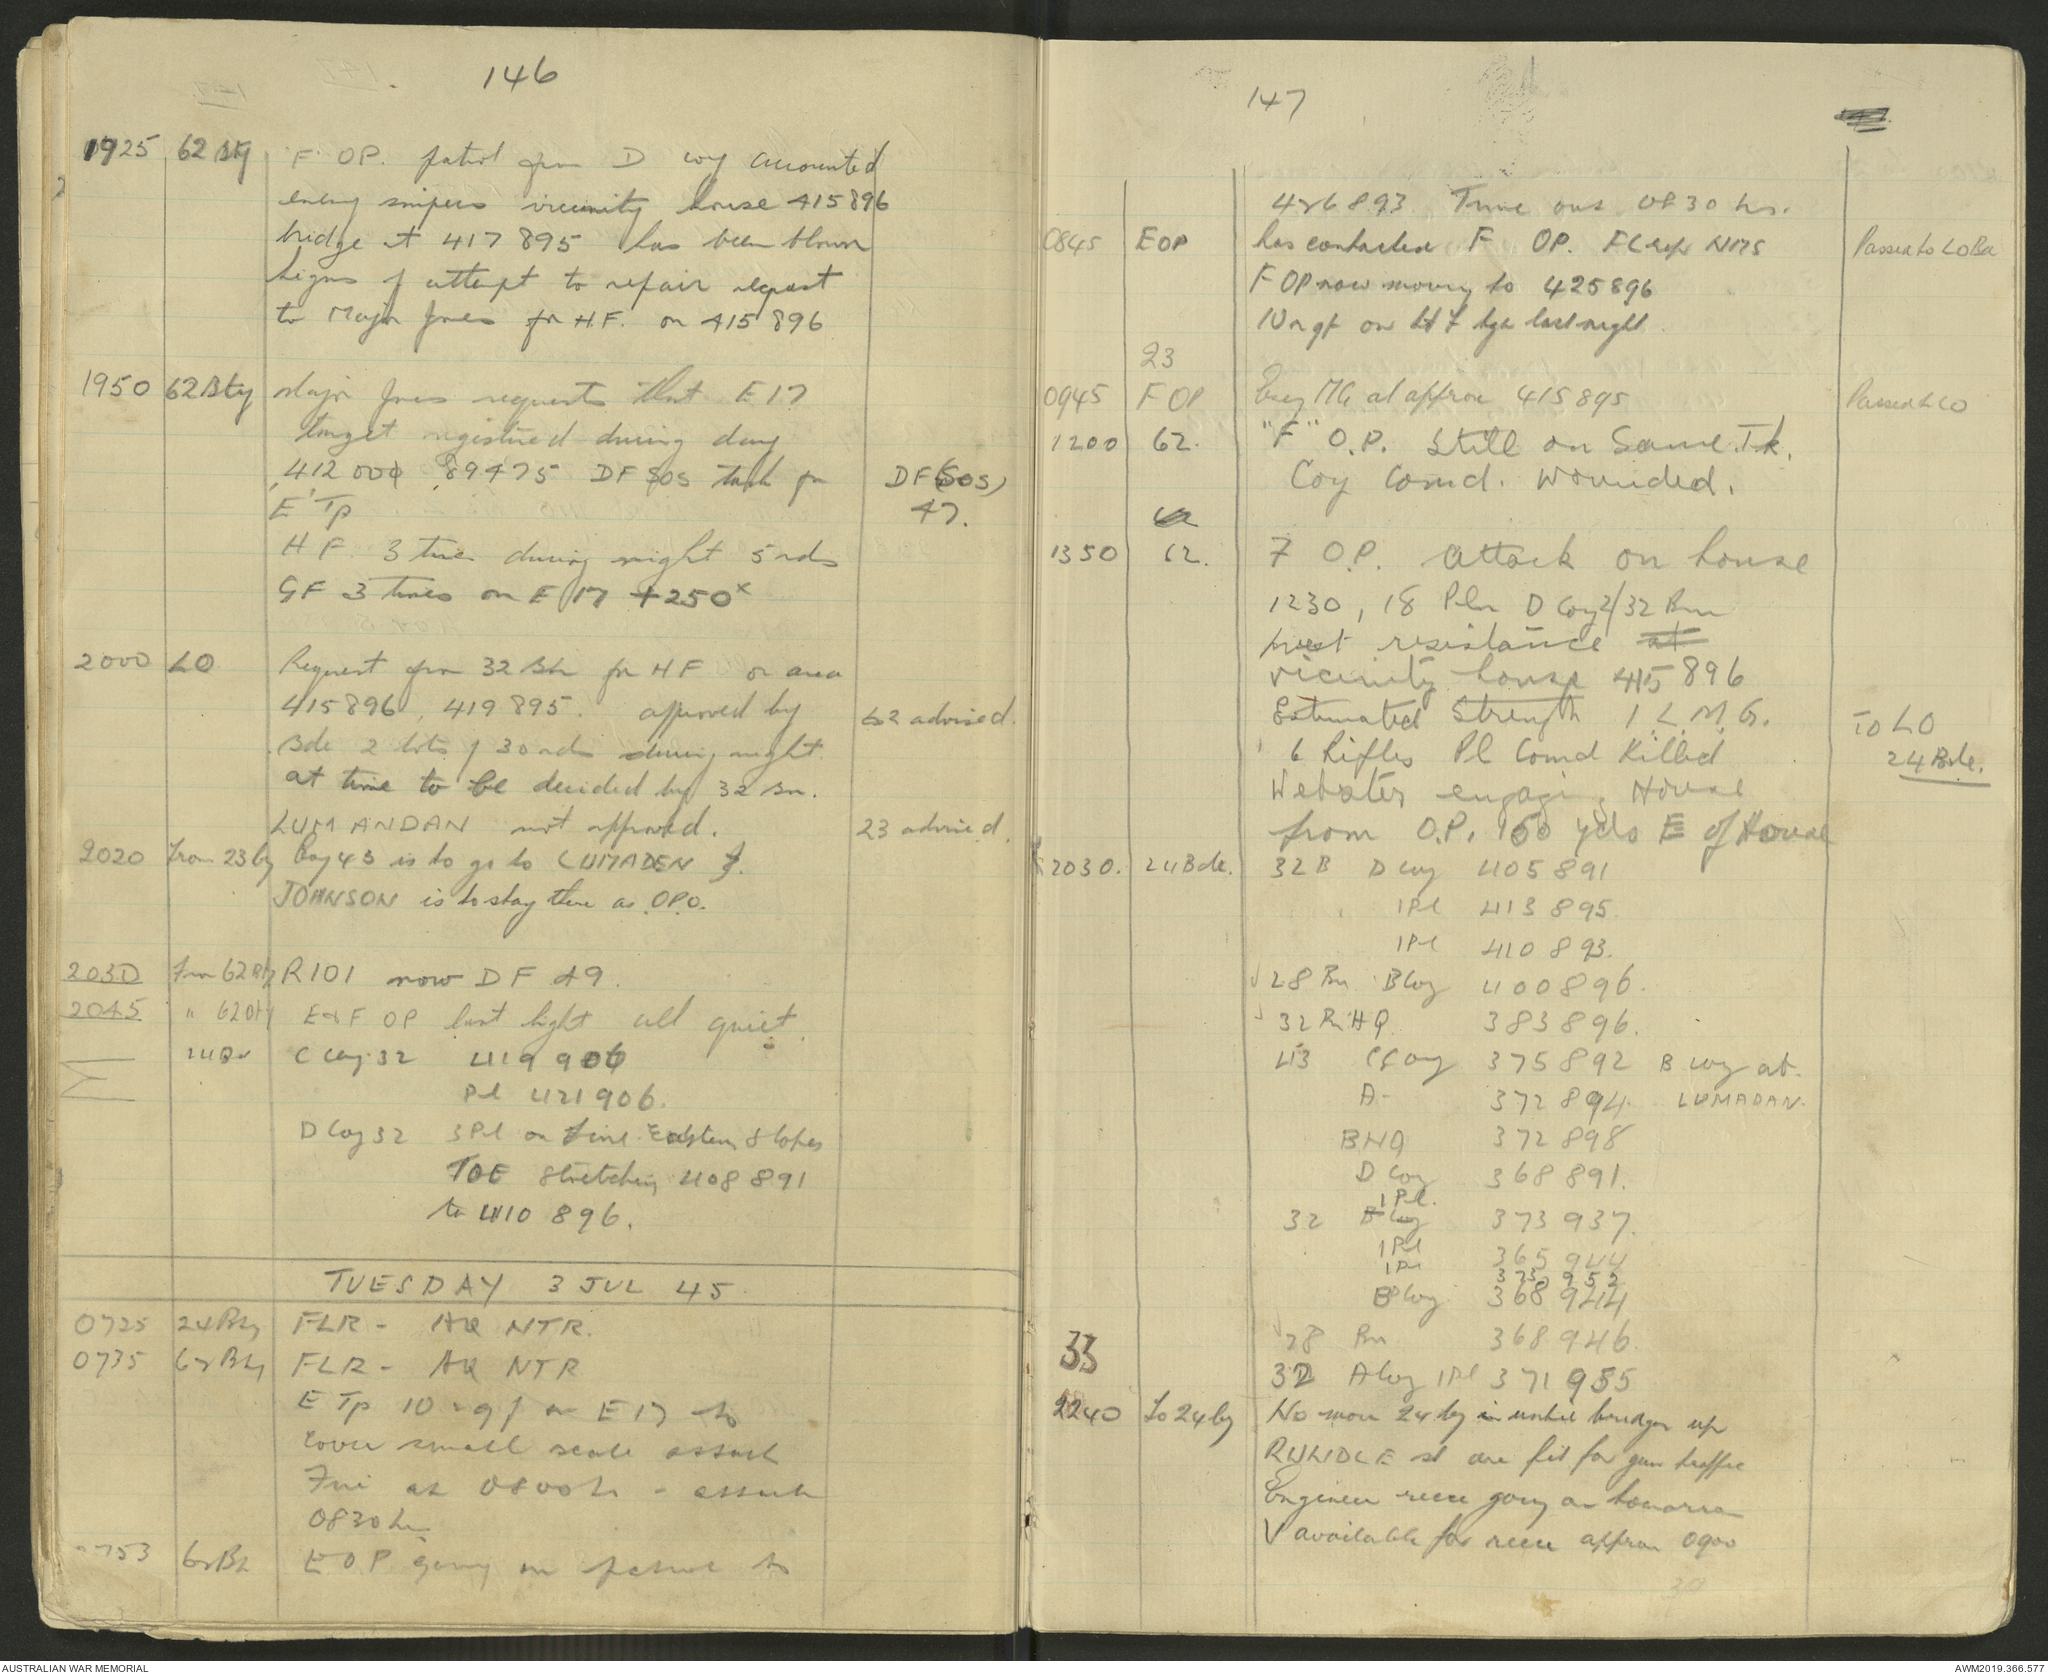 146
1925 62 Bty F OP. patrol from D coy accounted
enemy snipers vicinity house 415896
bridge at 417895 has been blown
signs of attempt to repair request
to Major Jones for H.F. on 415896
1950 62 Bty Major Jones requests that E17
target registered during day
412000 89475 DF SOS task for DF (SOS)
E Tp 47.
HF. 3 times during night 5 rds
GF 3 times on E 17 +250x
2000 LO Request from 32 Bn for HF on area
415896, 419895. approved by 62 advised.
Bde 2 lots of 30 rds during night
at time to be decided by 32 Bn.
LUMANDAN not approved. 23 advised.
2020 From 23 by 43 is to go to LUMADEN
JOHNSON is to stay there as O.P.O.
2030 From 62 Bty R101 now DF 49.
2045 " 62 Bty E & F OP last light all quiet.
24 Bde C Coy 32 419906
Pl 421906.
D Coy 32 3 Pl on line Eastern Slopes
TOE Stretching 408891
to 410896.
TUESDAY 3 JUL 45
0725 24 Bty FLR - AQ NTR.
0735 62 Bty FLR - AQ NTR
E Tp 10 r g f on E17 to
cover small scale assault
Fire at 0800 h - assault
0830 h
0753 62 Bty E OP going on patrol to
147
426893 Time out 0830 hrs.
0845 EOP has contacted F OP. Passed to LO Bde
F OP now moving to 425896
10 r g f on last night
23
0945 F OP Enemy MG at approx 415895 Passed to LO
1200 62. "F" O.P. still on Same Tk.
Coy Comd. Wounded.
1350 62. F O.P. attack on house
1230, 18 Pln D Coy 2/32 Bn
met resistance at
vicinity house 415896
Estimated Strength 1 L.M.G. To LO
6 Rifles Pl Comd Killed 24 Bde.
Webster engaging House
from O.P. 150 yds E of House
2030. 24 Bde. 32 B D Coy 405891
1 Pl 413895
1 Pl 410893.
28 Bn B Coy 400896.
32 Bn HQ 383896.
43 C Coy 375892 B Coy at
A - 372894. LUMADAN.
BHQ 372898
D Coy 368891.
1 Pl.
32 B Coy 373937.
1 Pl 365944
1 Pl 373952
B Coy 368944
28 Bn 368946.
33
32 A Coy 1 Pl 371955
2240 To 24 by No move 24 by in until bridges up
are fit for gun traffic
Engineer recce going on tomorrow
V available for recce approx 0900
30
AUSTRALIAN WAR MEMORIAL
AWM2019.366.577